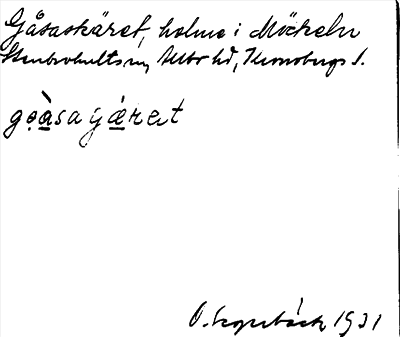 Gåsaskäret, holme i Möckeln
Stenbrohults sn, Allbo hd, Kronobergs l.
gọàsagǽret
O. 1931